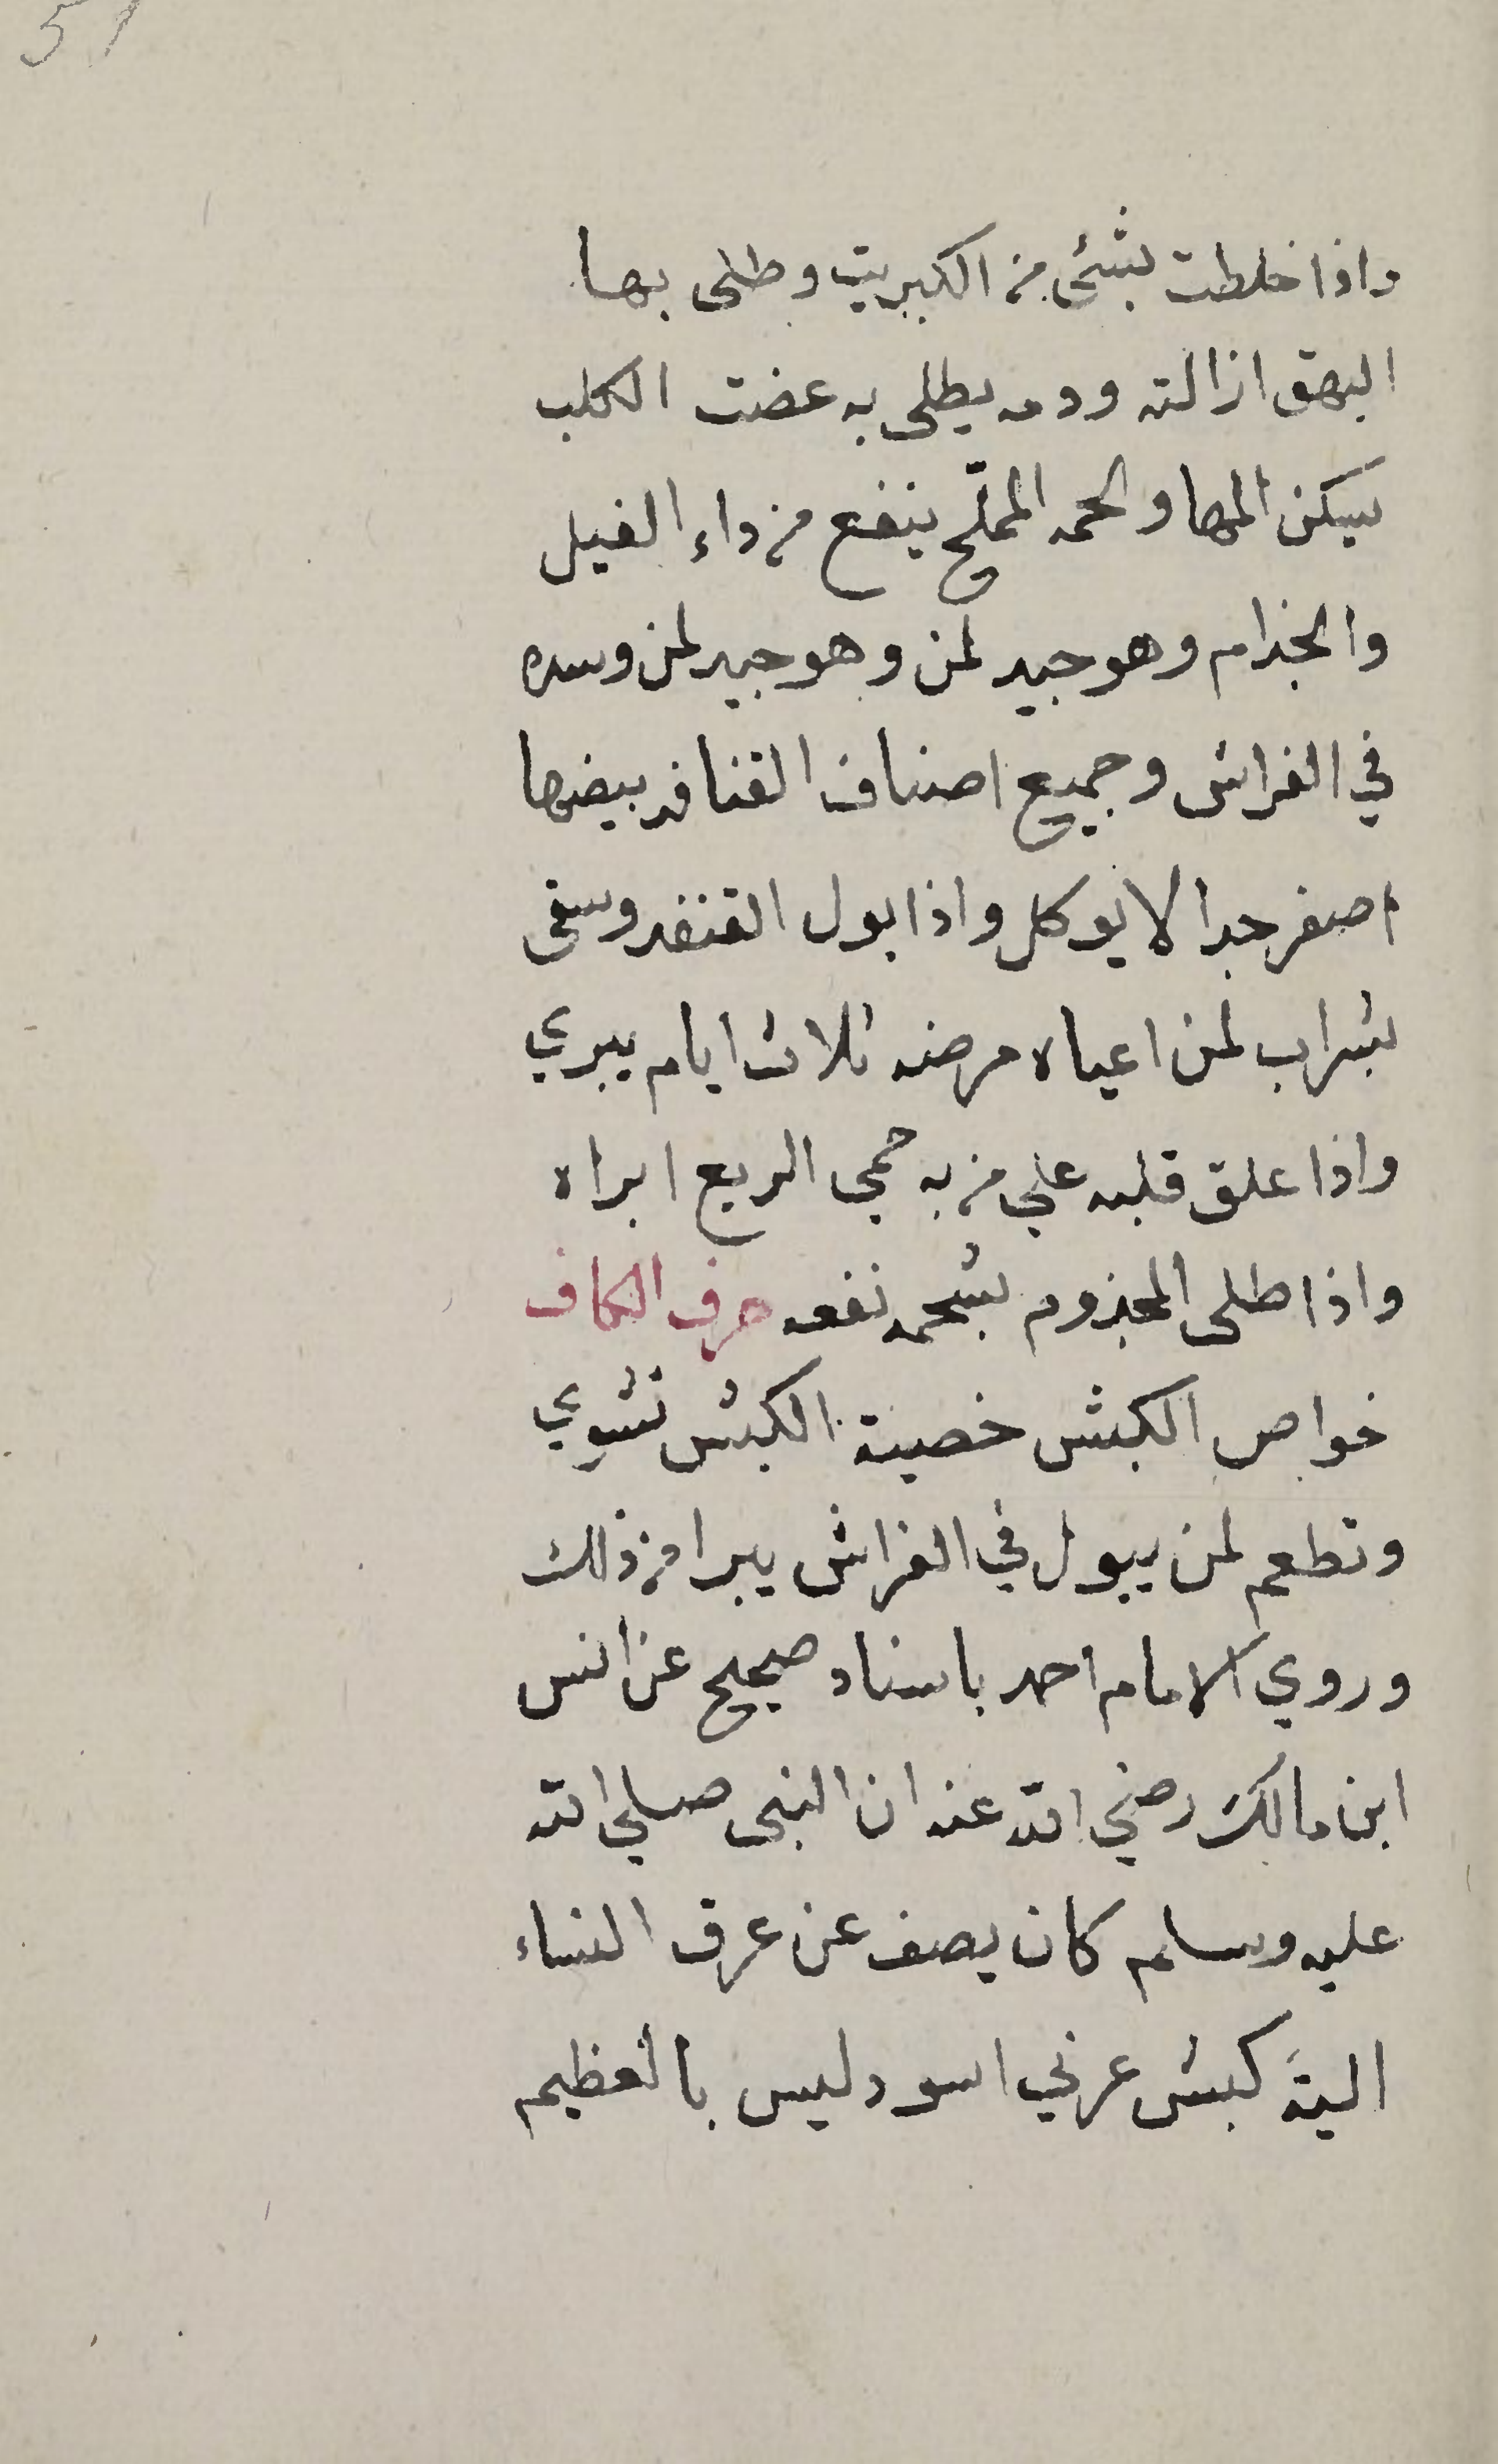 51
واذا خلطت بشئ من الكبريت وطلى بها
البهق ازالته ودمه يطلى به عضت الكلب
يسكن المها ولحمه المملّح ينفع من داء الفيل
والجذام وهو جيد لمن وهو جيد لمن وسده
في الفراش وجميع اصناف القنافد بيضها
اصفر جدا لا يوكل واذا بول القنفد وسقى
بشراب لمن اعياه مرضه ثلاث ايام يبري
واذا علق قلبه علي من به حمي الربع ابراه
واذا طلى المجذوم بشحمه نفعه حرف الكاف
خواص الكبش خصية الكبش تشوي
وتطعم لمن يبول في الفراش يبرا من ذلك
وروي الامام احمد باسناد صحيح عن انس
ابن مالك رضي الله عنه ان النبى صلي الله
عليه وسلم كان يصف عن عرق النساء
الية كبش عربي اسود ليس بالعظيم